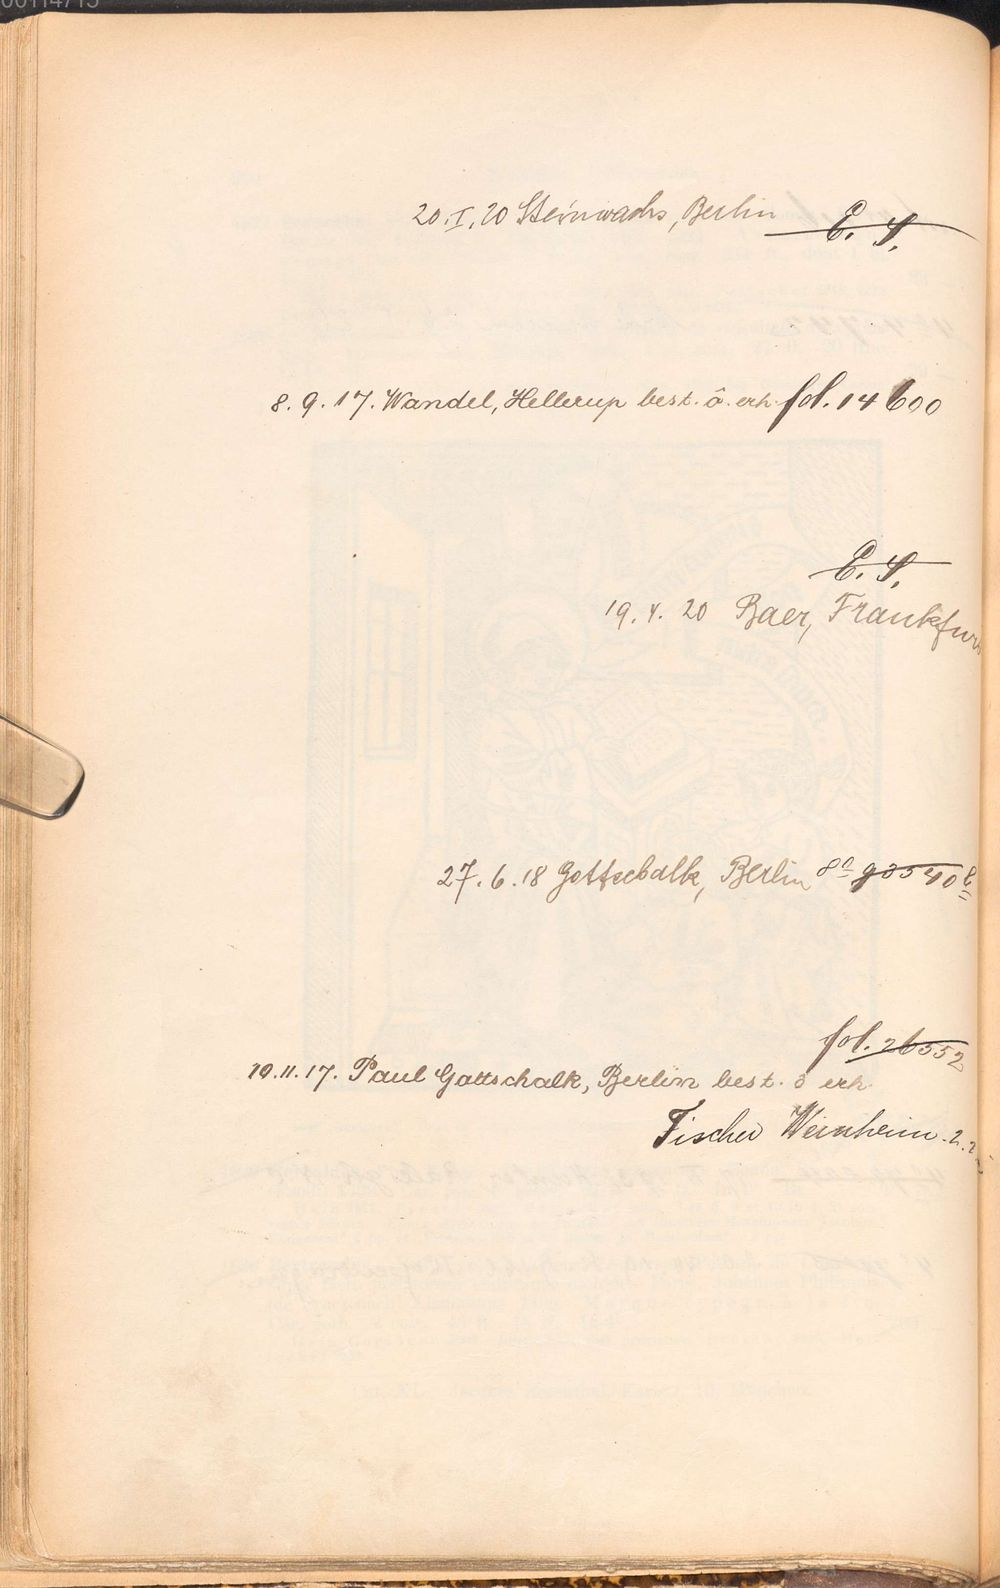 20.I.20 Steinwachs, Berlin E. S.
8. 9. 17. Wandel, Hellerup best. ô. erh. fol. 14600
E. S.
19. 4. 20 Baer, Frankfurt
27. 6. 18 Gottschalk, Berlin 8º 93540
fol. 26552
10. 11. 17. Paul Gottschalk, Berlin best. ô erh.
Fischer Weinheim. 2.